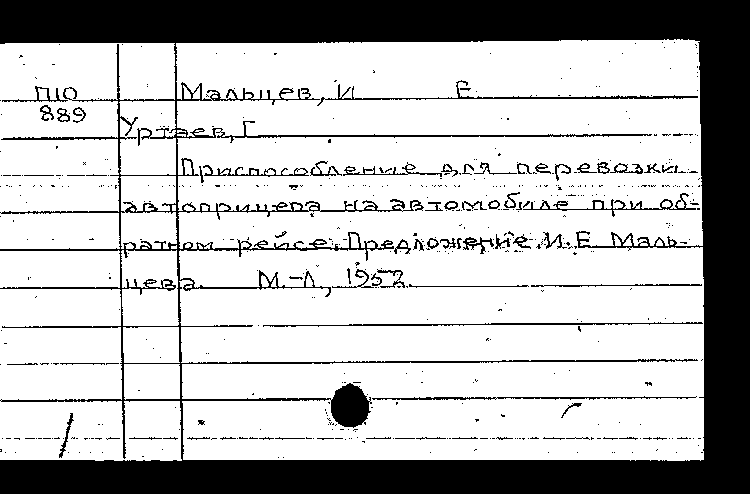 П10 Мальцев, И Е
889
Уртаев, Г
Приспособление для перевозки
автоприцепа на автомобиле при об-
ратном рейсе. Предложение И.Е. Маль-
цева. М.-Л., 1952.